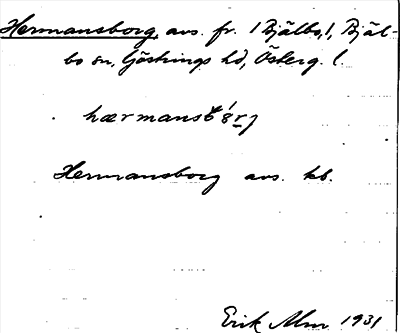 Hermansborg, avs. fr. / Bjälbo, /, Bjäl-
bo sn, Göstrings hd, Österg. l.
Hermansborg avs. kb.
Erik Alm 1931